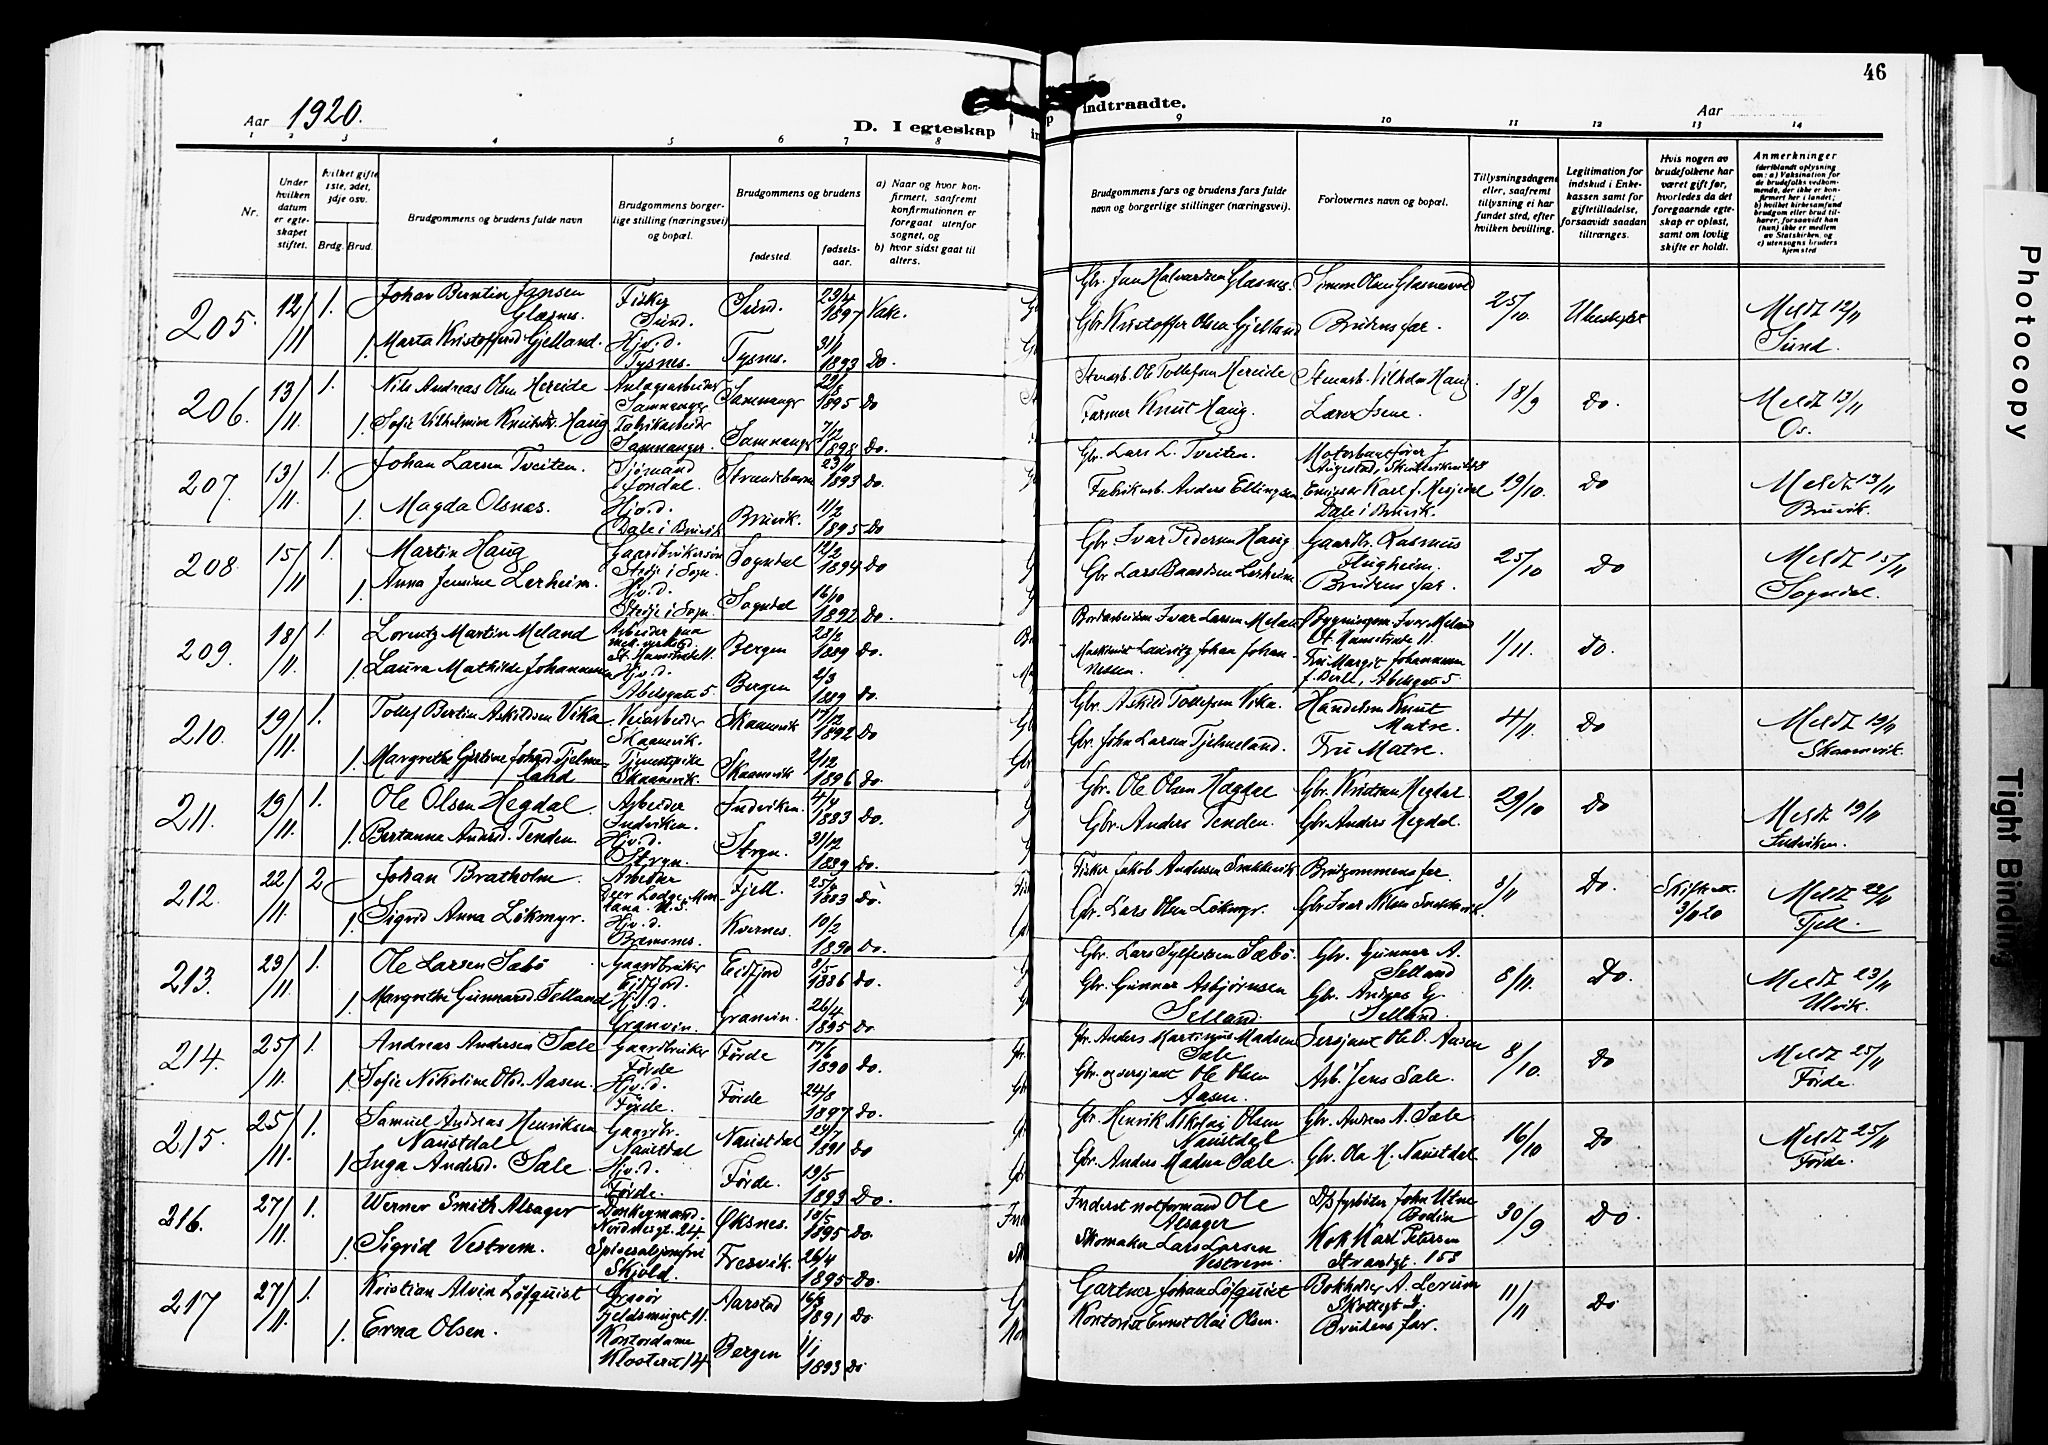 46
Aar 1920.
D. I egteskap
indtraadte.
Aar
1 2 3 4 5 6 7 8
9 10 11 12 13 14
Nr.
Under hvilken datum er egteskapet stiftet.
hvilket gifte 1ste, 2det, 3dje osv.
Brdg. Brud.
Brudgommens og brudens fulde navn
Brudgommens borgerlige stilling (næringsvei) og bopæl.
Brudgommens og brudens
fødested.
fødselsaar.
a) Naar og hvor konfirmert, saafremt konfirmationen er foregaat utenfor sognet, og
b) hvor sidst gaat til alters.
Brudgommens fars og brudens fars fulde navn og borgerlige stillinger (næringsvei).
Forlovernes navn og bopæl.
Tillysningsdagene eller, saafremt tillysning ei har fundet sted, efter hvilken bevilling.
Legitimation for indskud i Enkekassen samt for giftetilladelse, forsaavidt saadan tiltrænges.
Hvis nogen av brudefolkene har været gift før, hvorledes da det foregaaende egteskap er opløst, samt om lovlig skifte er holdt.
Anmerkninger
(deriblandt oplysning om: a) Vaksination for de brudefolks vedkommende, der ikke er konfirmert her i landet; b) hvilket kirkesamfund brudgom eller brud tilhører, forsaavidt han (hun) ikke er medlem av Statskirken, og c) utensogns bruders hjemsted
205. 12/11 1. Johan Berntin Jansen Glæsnes. Fisker Sund. Sund. 23/4 1897 Vake.
1. Marta Kristoffersd Gjelland. Hjv.d. Tysnes. Tysnes. 31/1 1893 Do.
Gbr. Jan Halvardsen Glæsnes. Simon Olsen 25/10. Meldt 12/11 Sund.
Gbr. Kristoffer Olsen Gjelland Brudens far.
206. 13/11. 1. Nils Andreas Olsen Hereide Anlægsarbeider Samnanger Samnanger 1895 Do
1. Sofie Vilhelmine Knutsd. Haug Fabrikarbeider Samnanger. Samnanger 7/12 1898 Do.
Stenarb. Ole Tollefsen Hereide Stenarb. Vilhelm Haug. 18/9 Do. Meldt 13/11 Os.
Farmer Knut Haug. Lærer Isene.
207. 13/11. 1. Johan Larsen Tveiten. Sjømand Jondal. Strandebarm 23/11 1893 Do.
1. Magda Olsnes. Hjv.d. Dale i Bruvik Bruvik. 11/2 1895 Do
Gbr. Lars L. Tveiten. Motorbaatfører J. 19/10. Do Meldt 13/11 Bruvik.
Fabrikarb. Anders Ellingsen. Karl J. Dale i Bruvik.
208. 15/11 1. Martin Haug Gaardbrukersøn Stedje i Sogn. Sogndal 12/2 1894 Do
1. Anna Jensine Lerheim. Hjv.d. Stedje i Sogn. Sogndal 16/10 1892 Do.
Gbr. Ivar Pedersen Haug Gaardbr. Rasmus Flugheim. 25/10 Do Meldt 15/11 Sogndal.
Gbr. Lars Baardsen Lerheim Brudens far.
209. 18/11. 1. Lorentz Martin Meland Arbeider paa mek. verksted. St. Hansstræde 11. Bergen 1889 Do.
1. Laura Mathilde Johannessen Hjv.d. Abelsgate 5. Bergen 2/3 1889 Do.
Ivar Larsen Meland Bygningssm. Ivar Meland St. Hansstræde 11. 1/11. Do.
Maskinist Lauritz Johan Johannessen Fru Margit Johannessen f. Berle, Abelsgate 5
210. 19/11. 1. Tollef Bertin Askildsen Vika Veiarbeider Skaanevik. Skaanevik 17/12 1892 Do
1. Margrethe Gjertine Johnsd Tjelmeland Tjenestpike Skaanevik. Skaanevik 2/12 1896 Do.
Gbr. Askild Tollefsen Vika. Handelsm Knut Matre. 4/11. Do Meldt 19/11 Skaanevik.
Gbr. John Larsen Tjelmeland. Fru Matre.
211. 19/11. 1. Ole Olsen Hegdal Arbeider Indviken. Indviken. 4/4 1883 Do.
1. Bertanna Andersd. Tenden Hjv.d. Stryn. Stryn. 31/12 1889 Do.
Gbr. Ole Olsen Hegdal Gbr. Kristian Hegdal. 29/10 Do Meldt 19/11 Indviken.
Gbr. Anders Tenden. Gbr. Anders Hegdal.
212. 22/11. 2 Johan Bratholm. Arbeider Deer Lodge, Montana. U.S. Fjell 1883 Do.
1. Sigrid Anna Løkmyr. Hjv.d. Bremsnes. Kvernes. 10/2 1890 Do.
Fisker Jakob Andersen Brudgommens far. 3/11 Do. 3/11 20 Meldt 22/11 Fjell.
Gbr. Lars Olsen Løkmyr. Gbr. Ivar Nilsen
213. 23/11. 1. Ole Larsen Sæbø Gaardbruker Eidfjord. Eidfjord 8/5 1886 Do.
1. Margrethe Gunnarsd. Selland Hjv.d. Granvin. Granvin. 26/4 1895 Do
Gbr. Lars Sylfestsen Sæbø. Gbr. Gunnar A. Selland 8/11. Do. Meldt 23/11 Ulvik.
Gbr. Gunnar Asbjørnsen Selland. Gbr. Anders G. Selland.
214. 25/11. 1. Andreas Andersen Sæle Gaardbruker Førde Førde 17/6 1890 Do.
1. Sofie Nikoline Olsd. Aasen. Hjv.d. Førde. Førde 24/8 1897 Do.
Gbr. Anders Martinius Madsen Sæle Sersjant Ole O. Aasen 8/10. Do Meldt 25/11 Førde.
Gbr. og sersjant Ole Olsen Aasen. Arb. Jens Sæle.
215. 25/11. 1. Samuel Andreas Henriksen Naustdal Gaardbr. Naustdal Naustdal 1891 Do
1. Inga Andersd. Sæle Hjv.d. Førde. Førde. 19/5 1893 Do.
Gbr. Henrik Nikolai Olsen Naustdal Gbr. Andreas A. Sæle 16/10 Do Meldt 25/11 Førde.
Gbr. Anders Madsen Sæle. Gbr. Ola H. Naustdal
216. 27/11. 1. Werner Smith Alsager Donkeymand. Nordnesgt. 24. Øksnes. 18/5 1895 Do.
1. Sigrid Vestrem. Skjold. 26/4 1895 Do.
Inderst notformand Ole Alsager D/s fyrbøter John Utne Bodin 30/9 Do.
Skomaker Lars Larsen Vestrem. Kok Karl Petersen Strandgt. 153
217 27/11. 1. Kristian Alvin Löfquist Gravør Fjeldsmuget 11. Aarstad 1891 Do.
1. Erna Olsen. Kontordame Klosteret 14 Bergen 1/1 1893 Do
Gartner Johan Löfquist Bokholder A. Lerum Skottegt 11/11 Do
Kontorist Ernst Olai Olsen. Brudens far.
Photocopy
Tight Binding